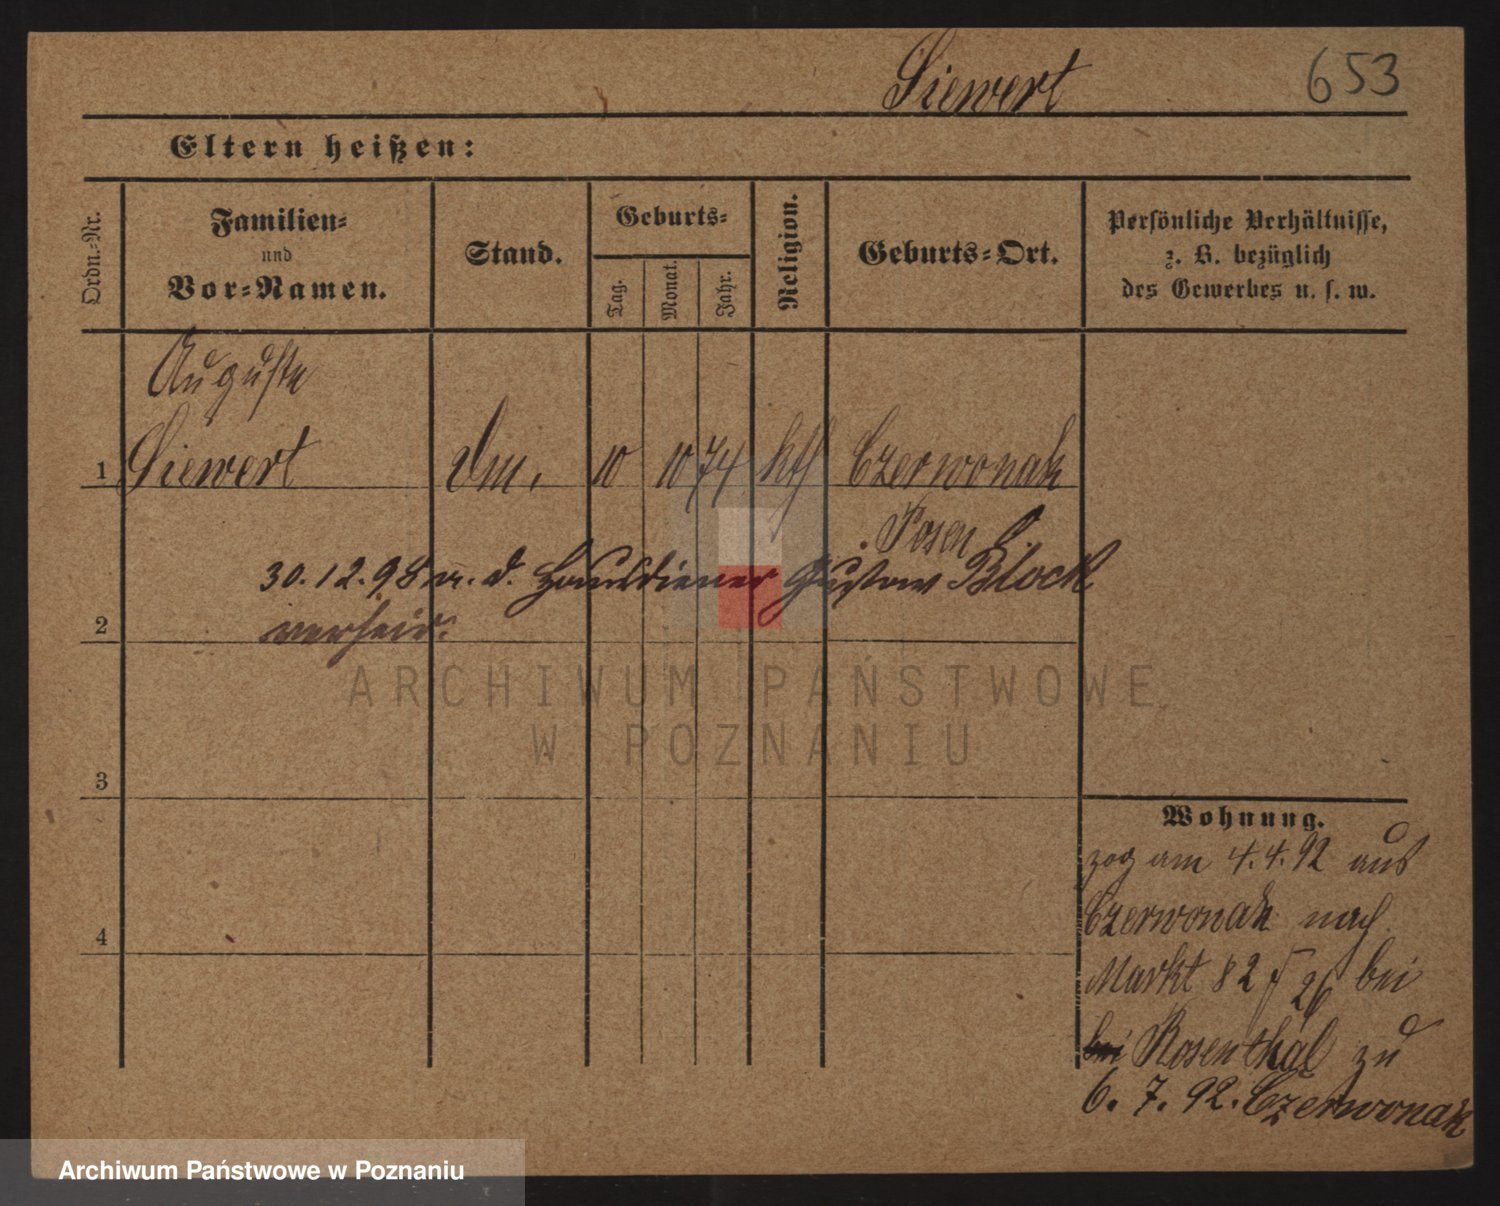 Siewert 653
Eltern heißen:
Ordn.-Nr.
Familien-
und
Vor-Namen.
Stand.
Geburts-
Tag.
Monat.
Jahr.
Religion.
Geburts-Ort.
Persönliche Verhältnisse,
z. B. bezüglich
des Gewerbes u. s. w.
Auguste
1 Siewert Dm. 10 10 74 kth Czerwonak
Posen O.
30.12.98 m. d. Hausdiener Gustav Block
2 verheir.
3
4
Wohnung.
zog am 4.4.92 aus
Czerwonak nach
Markt 82 26 bei
bei Rosenthal zu
6. 7. 92. Czerwonak
ARCHIWUM PAŃSTWOWE
W POZNANIU
Archiwum Państwowe w Poznaniu